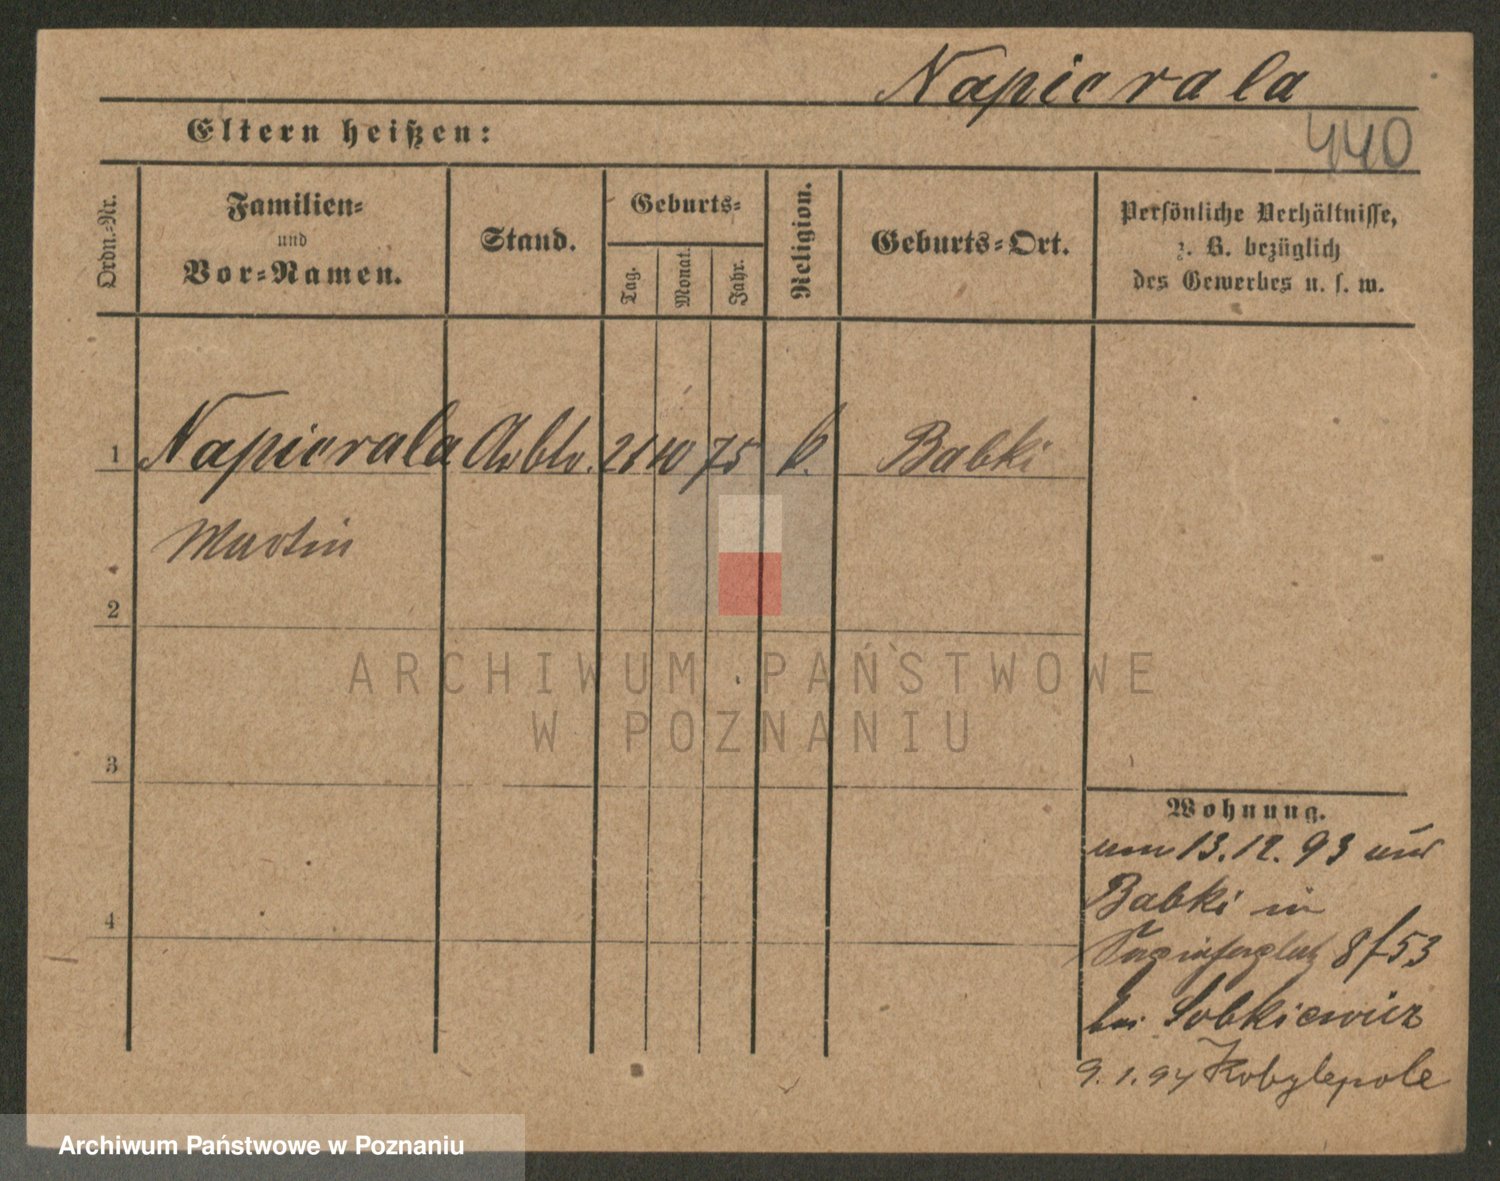 Napierala
440
Eltern heißen:
Ordn.-Nr.
Familien-
und
Vor-Namen.
Stand.
Geburts-
Tag.
Monat.
Jahr.
Religion.
Geburts-Ort.
Persönliche Verhältnisse,
z. B. bezüglich
des Gewerbes u. s. w.
1 Napierala Arbtr. 10 75 k. Babki
Martin
2
ARCHIWUM PAŃSTWOWE
W POZNANIU
3
Wohnung.
13.12.93 aus
Babki in
8 f 53
bei Sobkiewicz
9.1.94 Kobylepole
4
Archiwum Państwowe w Poznaniu